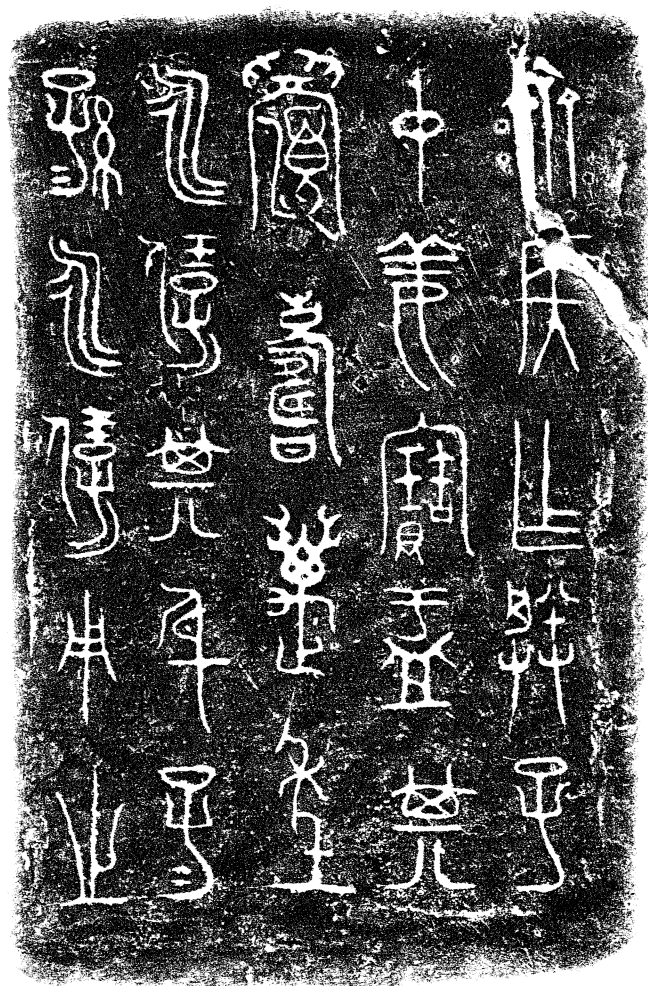 齊侯乍媵子
中姜寶盂其
眉壽萬年
永保其身子=
孫=永保用之